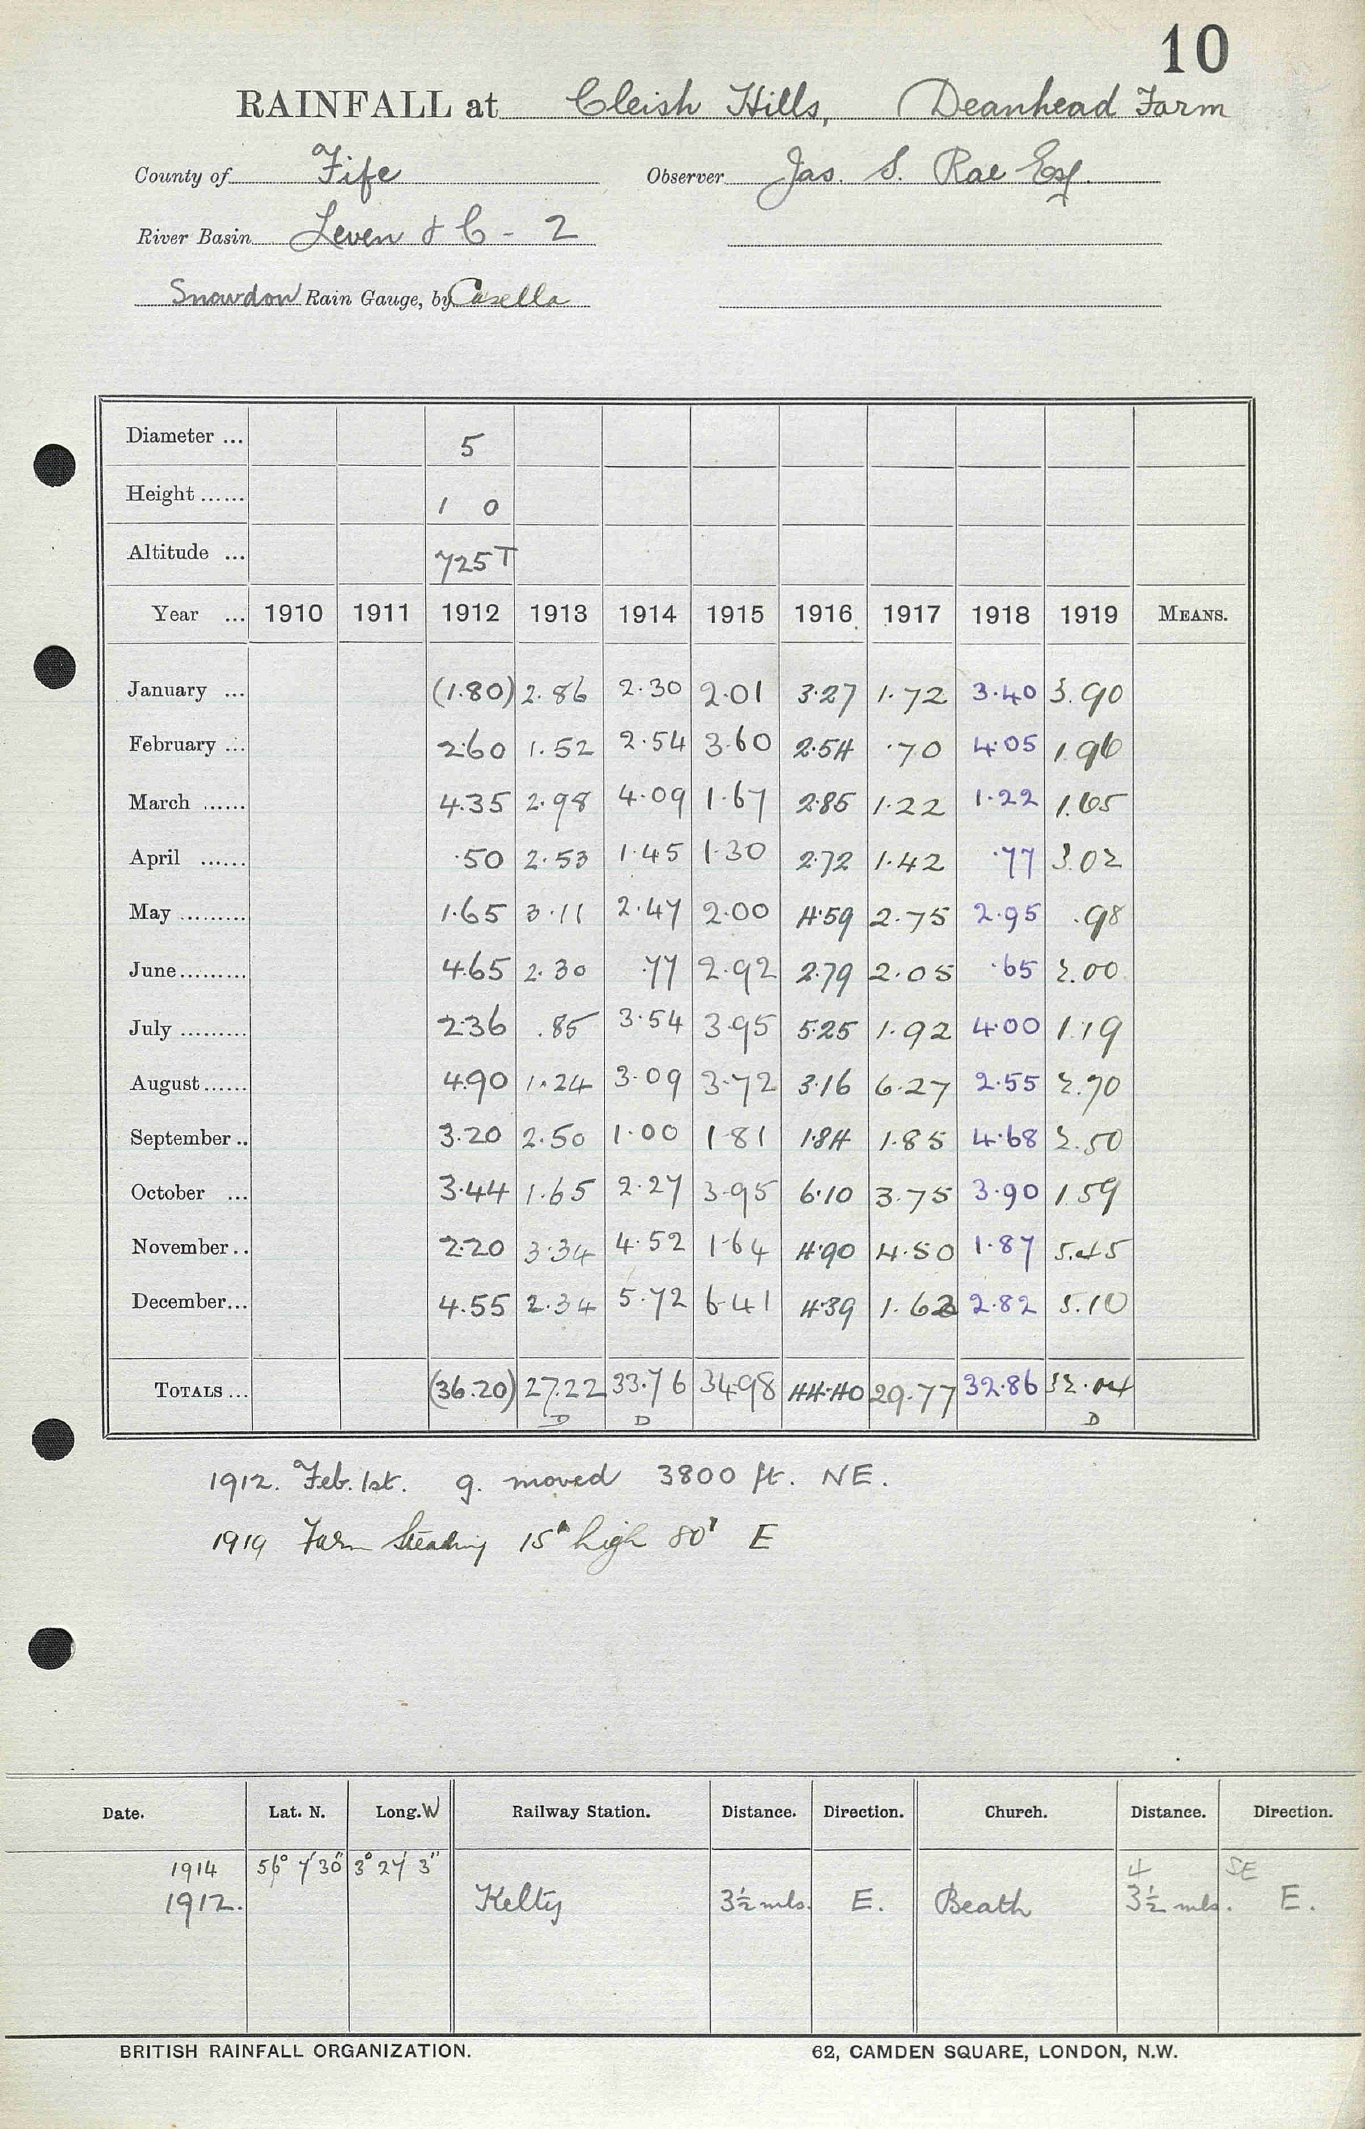 10
RAINFALL at Cleish Hills, Deanhead Farm
County of Fife Observer Jas. S. Rae Esq.
River Basin Leven & C - 2
Snowdon Rain Gauge, by Casella
Diameter ... 5
Height ...... 1 0
Altitude ... 725 T
Year ... 1910 1911 1912 1913 1914 1915 1916 1917 1918 1919 MEANS.
January ... (1.80) 2.86 2.30 2.01 3.27 1.72 3.40 3.90
February ... 2.60 1.52 2.54 3.60 2.54 .70 4.05 1.96
March ...... 4.35 2.98 4.09 1.67 2.85 1.22 1.22 1.65
April ...... .50 2.53 1.45 1.30 2.72 1.42 .77 3.02
May ......... 1.65 3.11 2.47 2.00 4.59 2.75 2.95 .98
June......... 4.65 2.30 .77 2.92 2.79 2.05 .65 2.00
July ......... 2.36 .85 3.54 3.95 5.25 1.92 4.00 1.19
August...... 4.90 1.24 3.09 3.72 3.16 6.27 2.55 2.70
September .. 3.20 2.50 1.00 1.81 1.84 1.85 4.68 2.50
October ... 3.44 1.65 2.27 3.95 6.10 3.75 3.90 1.59
November .. 2.20 3.34 4.52 1.64 4.90 4.50 1.87 5.45
December... 4.55 2.34 5.72 6.41 4.39 1.62 2.82 5.10
TOTALS ... (36.20) 27.22 33.76 34.98 44.40 29.77 32.86 32.04
D D D
1912. Feb. 1st. g. moved 3800 ft. NE.
1919 Farm Steading 15' high 80' E
Date. Lat. N. Long. W Railway Station. Distance. Direction. Church. Distance. Direction.
1914 56° 7' 30" 3° 27' 3" 4 SE
1912. Kelty 3½ mls. E. Beath 3½ mls. E.
BRITISH RAINFALL ORGANIZATION. 62, CAMDEN SQUARE, LONDON, N.W.